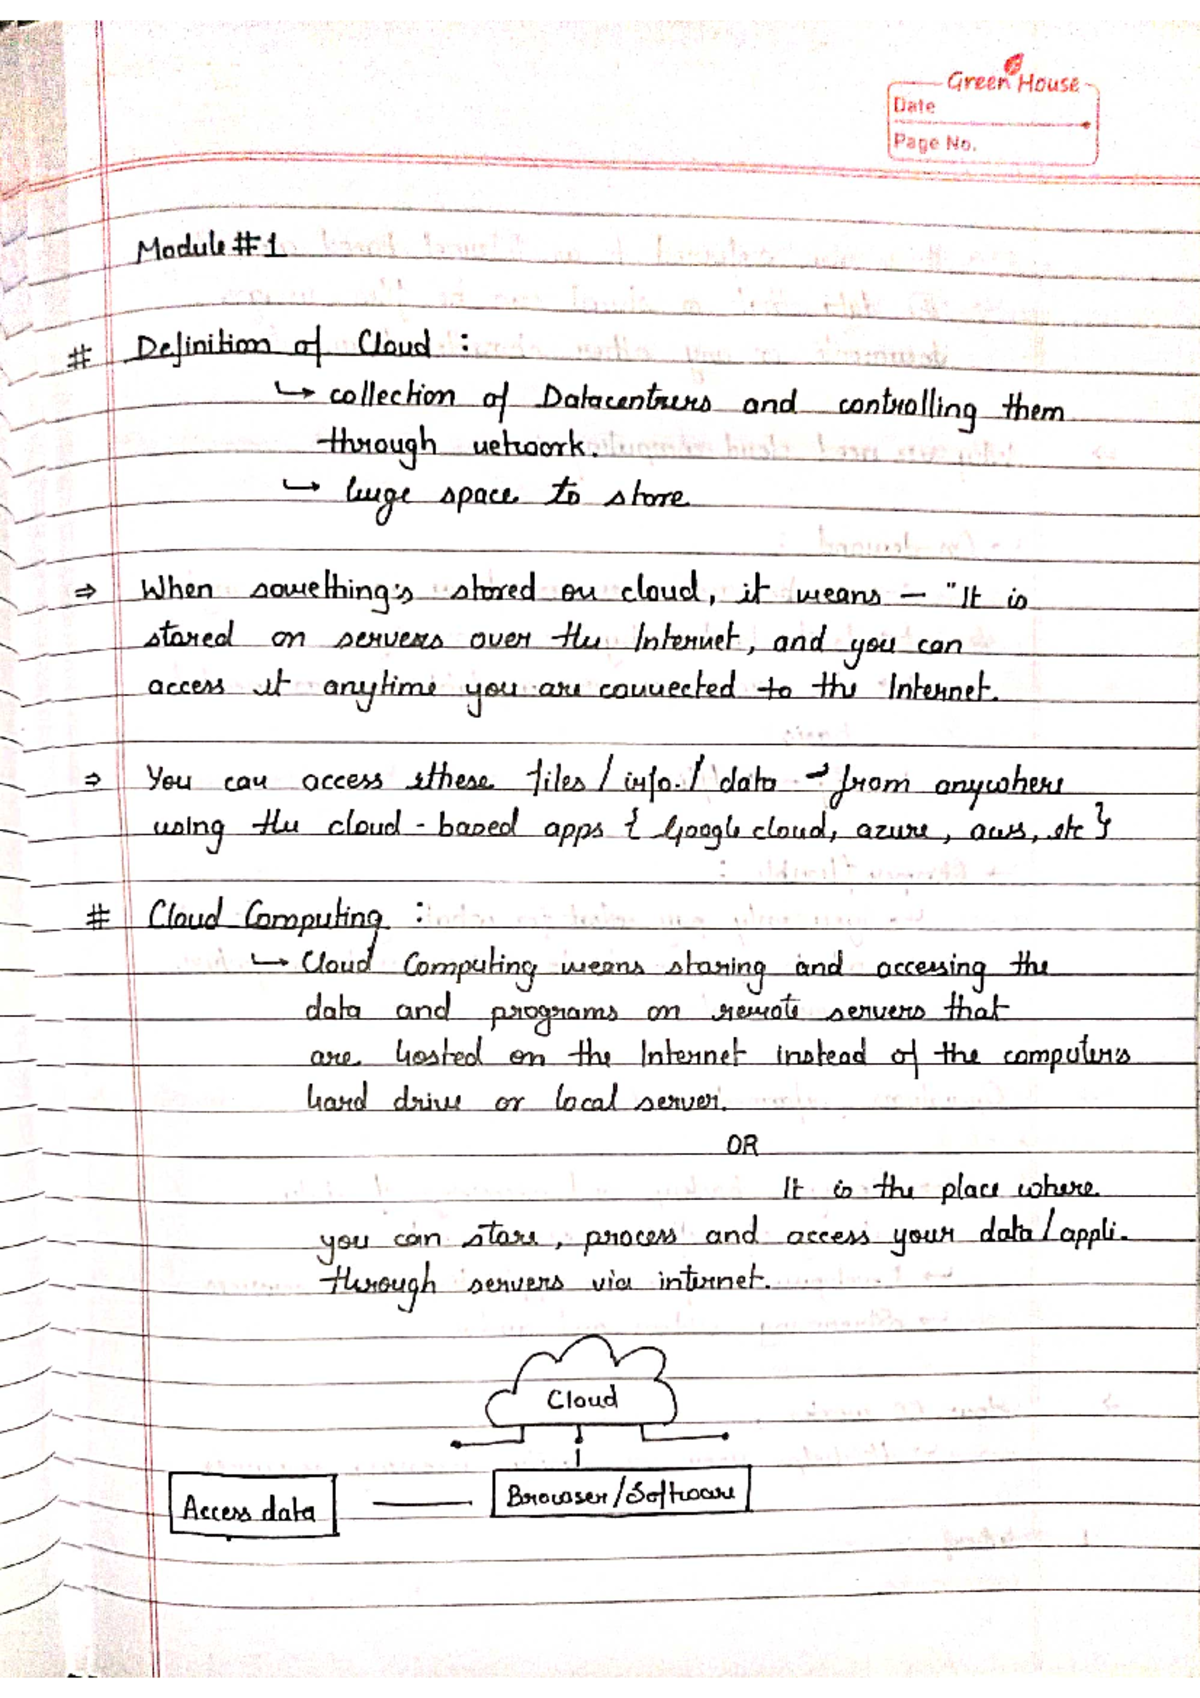 Green House
Date
Page No.
Module #1
# Definition of Cloud :
↳ collection of Datacentrers and controlling them
through network.
↳ huge space to store
⇒ When something's stored on cloud, it means — "It is
stored on servers over the Internet, and you can
access it anytime you are connected to the Internet.
⇒ You can access these files / info. / data → from anywhere
using the cloud - based apps { Google cloud, azure, aws, etc }
# Cloud Computing :
↳ Cloud Computing means storing and accessing the
data and programs on remote servers that
are hosted on the Internet instead of the computer's
hard drive or local server.
OR
It is the place where
you can store, process and access your data / appli.
through servers via internet.
Cloud
Access data
Browser/Software